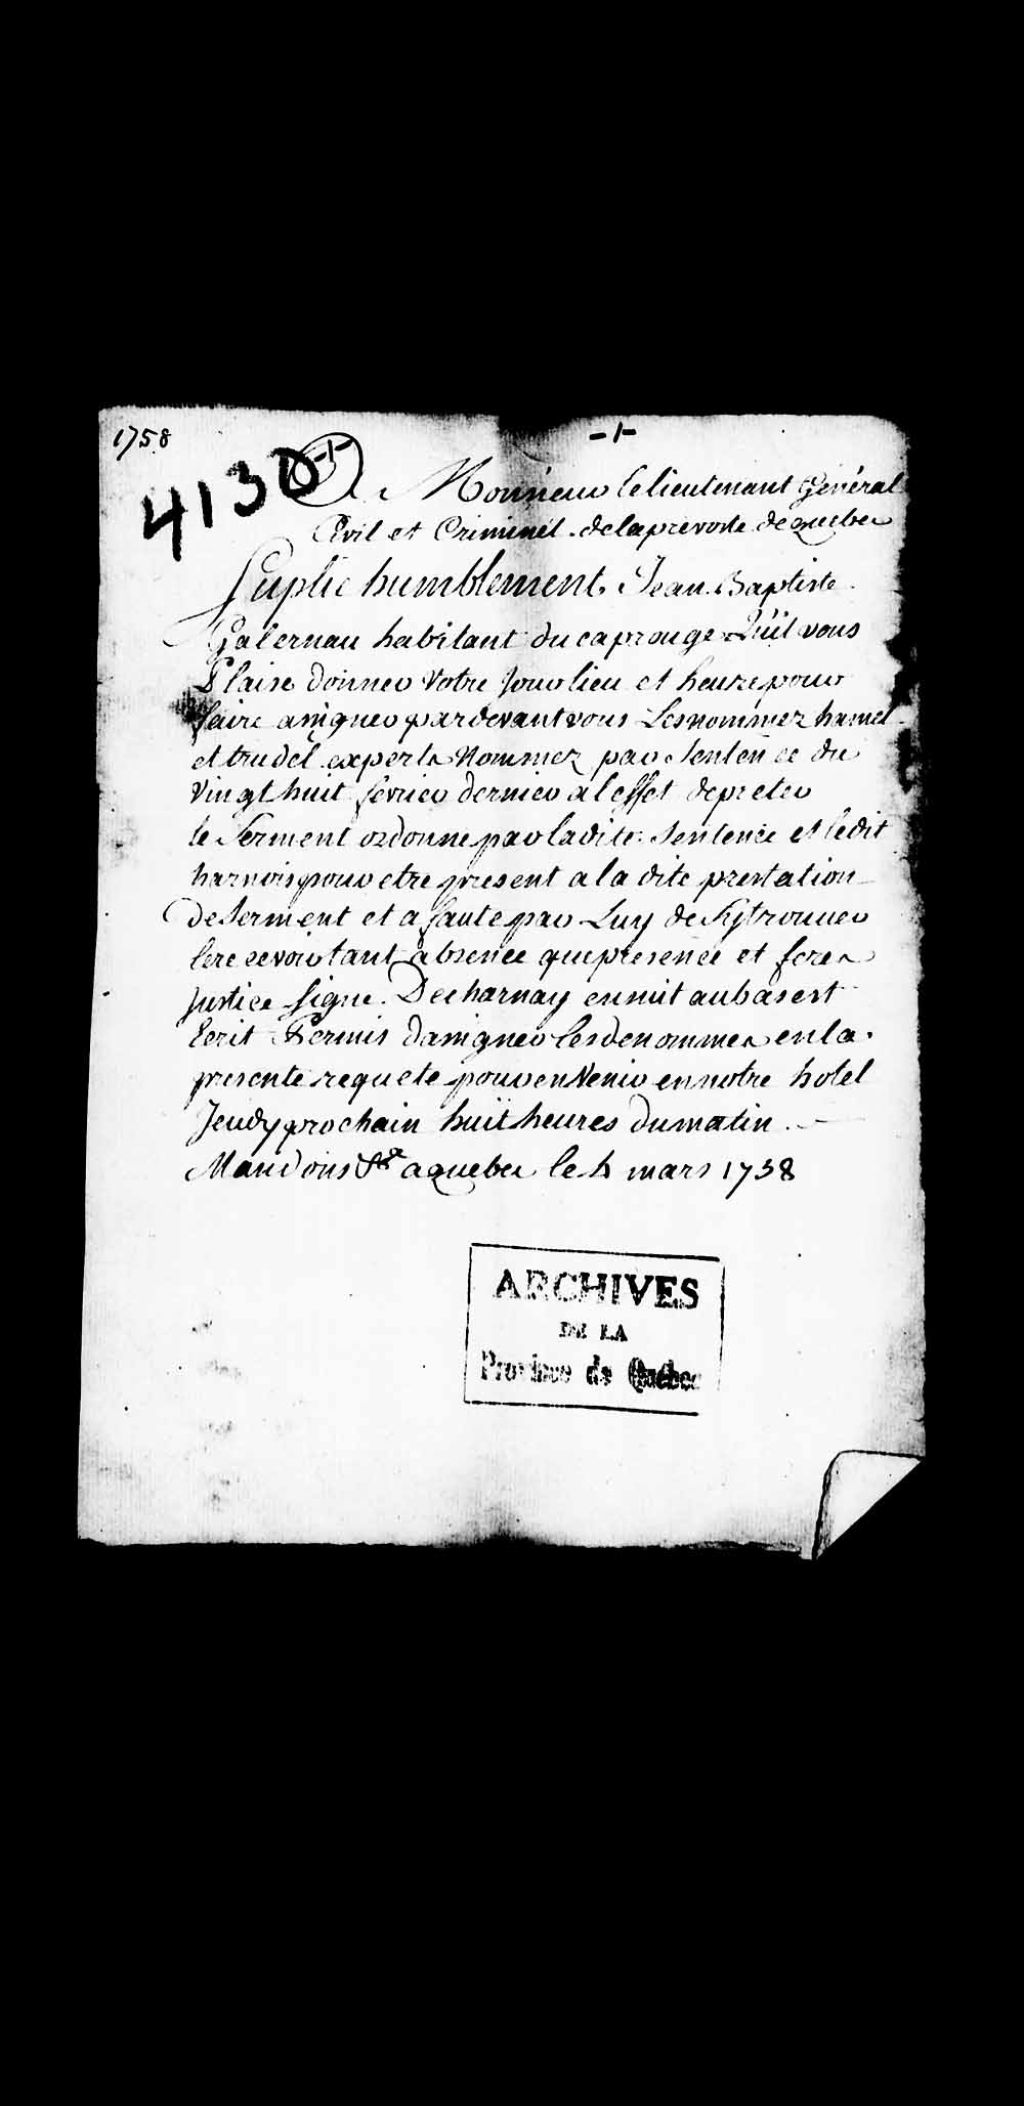 1758
-1-
4130
-1-
A Monsieur le lieutenant Général
Civil et Criminel de la prevosté de quebec
Suplie humblement Jean Baptiste
Galernau habitant du cap rouge Quil vous
Plaise donner Votre Jour lieu et heure pour
faire assigner pardevant vous Les nommez hamel
et trudel experts Nommez par Sentence du
Vingt huit février dernier a leffet de preter
le Serment ordonne par la dite Sentence et ledit
harnois pour etre present a la dite prestation
de Serment et a faute par Luy de Sy trouver
le recevoir tant absence que presence et ferez
Justice Signe Decharnay ensuit au bas est
Ecrit Permis dassigner les denommez en la
presente requete pour en Venir en notre hotel
Jeudy prochain huit heures du matin
Mandons &c a quebec le 4 mars 1758
ARCHIVES
DE LA
Province de Québec